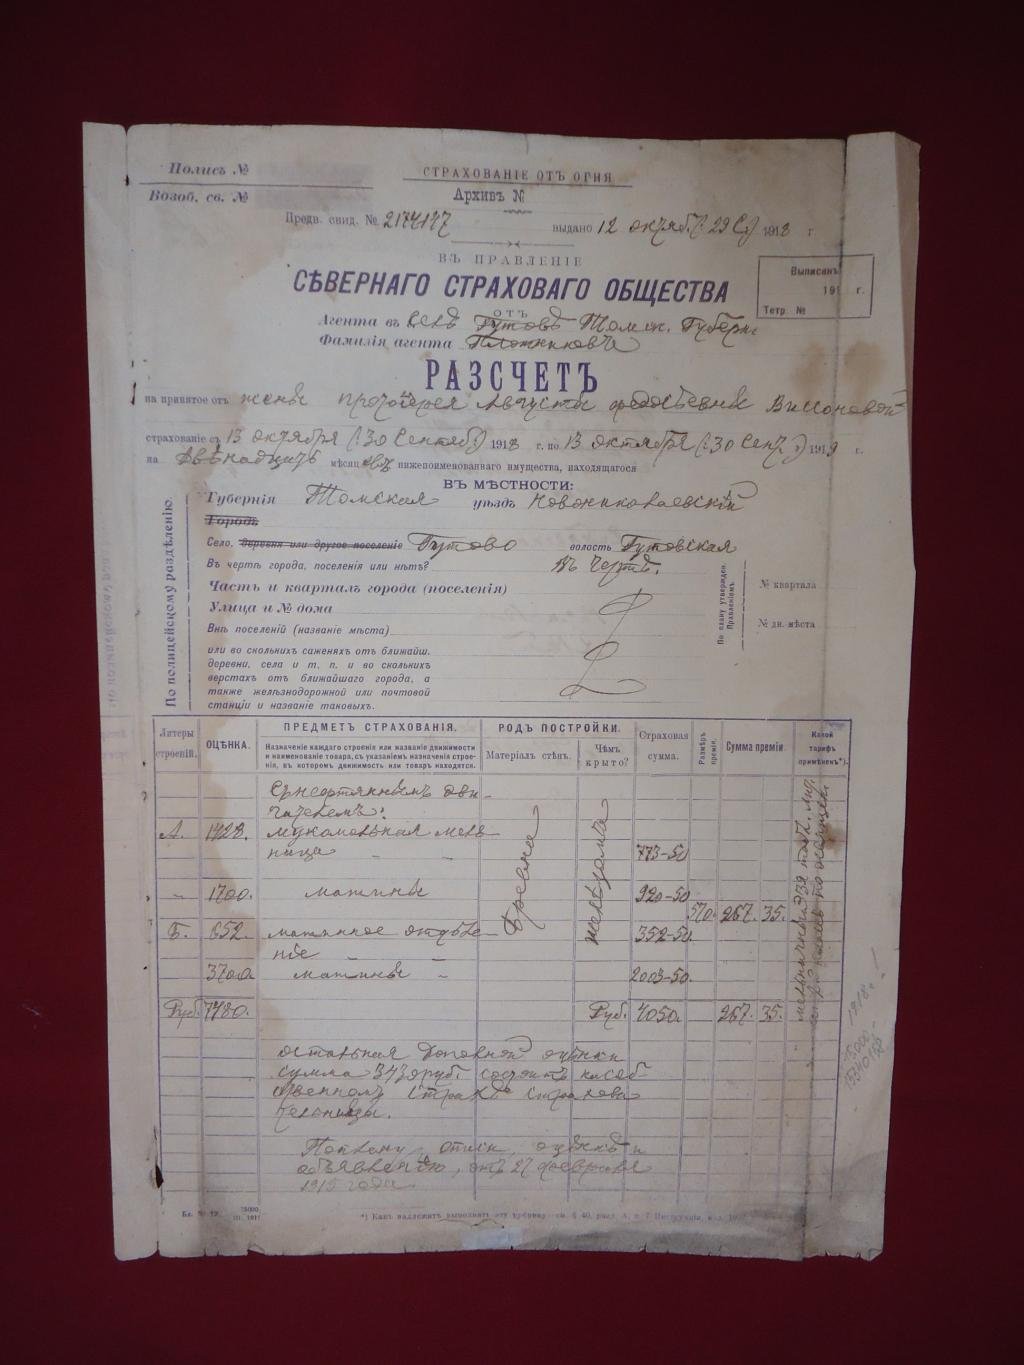 Полисъ №
СТРАХОВАНІЕ ОТЪ ОГНЯ
Возоб. св. №
Архивъ №
Предв. свид. № 2174117 выдано 12 октября / 29 Сен / 1918 г.
ВЪ ПРАВЛЕНІЕ
СѢВЕРНАГО СТРАХОВАГО ОБЩЕСТВА
Выписанъ
191 г.
Тетр. №
ОТЪ
Агента въ селѣ Гутовѣ Томск. Губерн
Фамилія агента
РАЗСЧЕТЪ
на принятое отъ жены протоіерея Августы Федосѣевны
страхованіе съ 13 октября (30 Сентяб) 1918 г. по 13 октября (30 Сен) 1919 г.
на двѣнадцать мѣсяцевъ нижепоименованнаго имущества, находящагося
ВЪ МѢСТНОСТИ:
По полицейскому раздѣленію.
Губернія Томская уѣздъ Новониколаевскій
Городъ
Село, деревня или другое поселеніе Гутово волость Гутовская
Въ чертѣ города, поселенія или нѣтъ? Въ чертѣ.
Часть и кварталъ города (поселенія)
Улица и № дома
Внѣ поселеній (названіе мѣста)
или во сколькихъ саженяхъ отъ ближайш.
деревни, села и т. п. и во сколькихъ
верстахъ отъ ближайшаго города, а
также желѣзнодорожной или почтовой
станціи и названіе таковыхъ.
По плану утвержден. Правленіемъ
№ квартала
№ дн. мѣста
Литеры строеній.
ОЦѢНКА.
ПРЕДМЕТЪ СТРАХОВАНІЯ.
Назначеніе каждаго строенія или названіе движимости
и наименованіе товара, съ указаніемъ назначенія строе-
нія, въ которомъ движимость или товаръ находятся.
РОДЪ ПОСТРОЙКИ.
Матеріалъ стѣнъ.
Чѣмъ крыто?
Страховая сумма.
Размѣръ преміи.
Сумма преміи.
Какой тарифъ примѣненъ*).
Съ нефтянымъ дви-
гателемъ:
А. 1428. мукомольная мель 773-50
ница " "
" 1700. машины 920-50
570. 267. 35.
Б. 652. машинное отдѣле- 352-50.
ніе " "
3700. машины " 2003-50.
бревна
желѣзомъ
Руб. 7480. Руб. 4050. 267. 35.
остальная оцѣнки
сумма 3430 руб. состоитъ на соб
ственномъ страхѣ страхова
тельницы.
По плану, описи, оцѣнкѣ и
объявленію, отъ 27 февраля
1915 года
1918.
Бл. № 12.
75000
*) Какъ надлежитъ выполнять эту рубрику см. § 40, разд. А, п. 7 Инструкціи, изд. 19